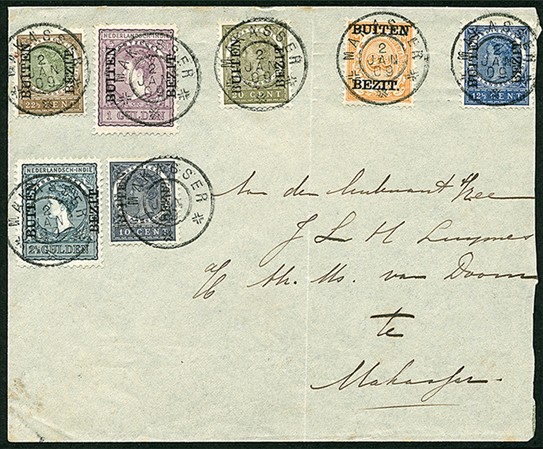 MAKASSER
2
JAN
09
BUITEN
BEZIT
22½ CENT
NEDERLANDSCH-INDIË
MAKASSER
BUITEN
BEZIT
1 GULDEN
MAKASSER
2
JAN
09
BUITEN
BEZIT
CENT
MAKASSER
2
JAN
09
BUITEN
BEZIT
MAKASSER
2
JAN
09
BUITEN
BEZIT
12½ CENT
NEDERLANDSCH-INDIË
MAKASSER
BUITEN
BEZIT
2½ GULDEN
MAKASSER
BUITEN
BEZIT
10 CENT
Aan den
J L H Luymes
van Doorn
te
Makasser